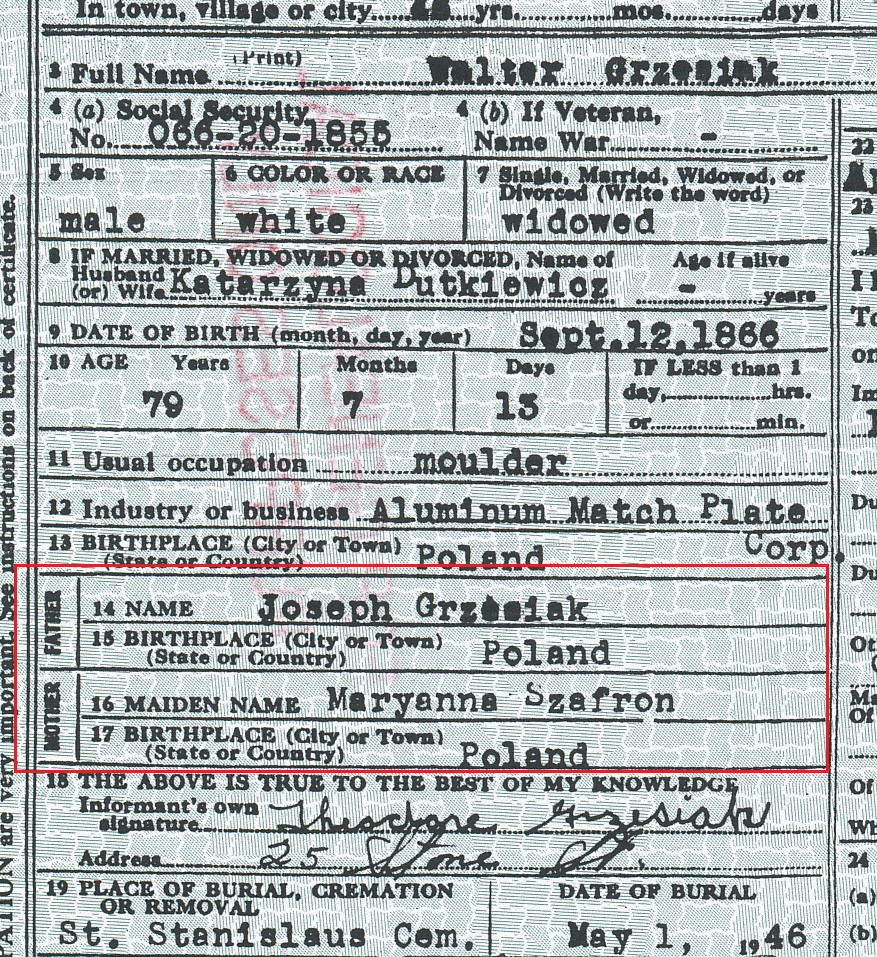 In town, village or city yrs. mos. days
(Print)
3 Full Name Walter Grzesiak
4 (a) Social Security 4 (b) If Veteran,
No. 066-20-1855 Name War -
5 Sex 6 COLOR OR RACE 7 Single, Married, Widowed, or
Divorced (Write the word)
male white widowed
8 IF MARRIED, WIDOWED OR DIVORCED, Name of Age if alive
Husband
(or) Wife Katarzyna Dutkiewicz - years
9 DATE OF BIRTH (month, day, year) Sept.12,1866
10 AGE Years Months Days IF LESS than 1
day, hrs.
79 7 13
or min.
11 Usual occupation moulder
12 Industry or business Aluminum Match Plate
Corp.
13 BIRTHPLACE (City or Town)
(State or Country) Poland
FATHER
14 NAME Joseph Grzesiak
15 BIRTHPLACE (City or Town)
(State or Country) Poland
MOTHER
16 MAIDEN NAME Maryanna Szafron
17 BIRTHPLACE (City or Town)
(State or Country) Poland
18 THE ABOVE IS TRUE TO THE BEST OF MY KNOWLEDGE
Informant's own
signature Theodore Grzesiak
Address 25 Stone St.
19 PLACE OF BURIAL, CREMATION DATE OF BURIAL
OR REMOVAL
St. Stanislaus Cem. May 1, 1946
are very important. See instructions on back of certificate.
22
23
To
on
Du
Du
Ot
Ma
Of
Of
Wh
24
(a)
(b)